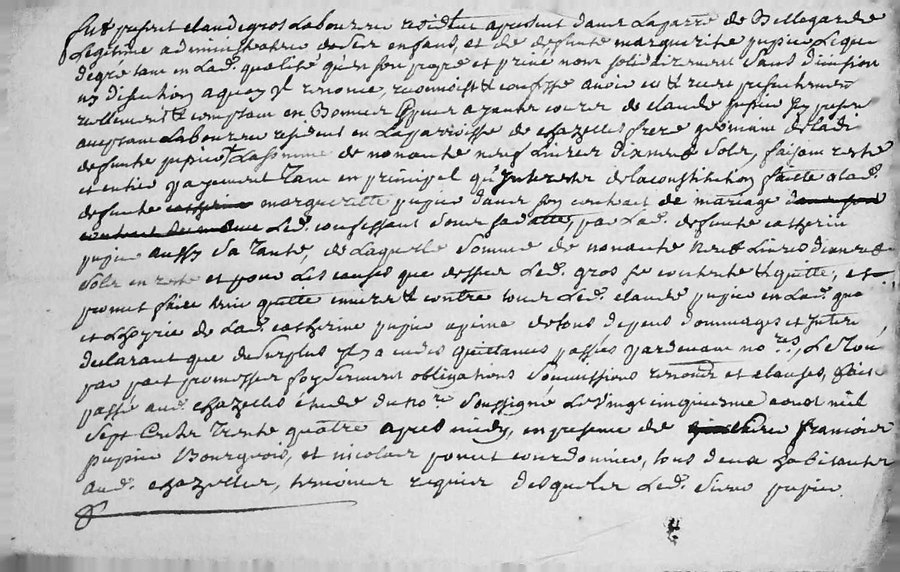 fut présent claude gros laboureur résident à présent dans la parre de Bellegarde
légitime administrateur de ses enfans, et de deffunte marguerite pupier lequel
de gré tant en lad. qualité qu'en son propre et privé nom solidairement sans division
ny discution a quoy il renonce, reconnoist & confesse avoir eu & receu présentement
réellement & comptant en Bonnes espèces ayants cours de claude pupier icy présent
acceptant laboureur résident en la parroisse de chazelles frère germain de ladi
deffunte pupier la somme de nonante neuf livres dixneuf sols, faisant reste
et entier payement tant en principal qu'interests de la constitution faitte a lad.
deffunte marguerite pupier dans son contrait de mariage
led. confessant par lad. deffunte catherine
pupier aussy sa tante, de laquelle somme de nonante neuf livres dixneuf
sols en reste et pour les causes que dessus led. gros se contente & quitte, et
promet faire tenir quitte envers & contre tous led. claude pupier en lad. qua
et l'hoyrie de lad. catherine pupier a peine de tous depens dommages et interé
déclarant que de surplus il y a eu des quittances passées pardevant no.res,
par pact promesses foy serment obligations soumissions renon. et clauses, fait
passé aud. chazelles étude du no.re soussigné le vingt cinquiesme aoust mil
sept cents trente quatre après midy, en présence de françois
pupier Bourgeois, et nicolas cordonnier, tous deux habitants
aud. chazelles, témoins requis desquels led. sieur pupier